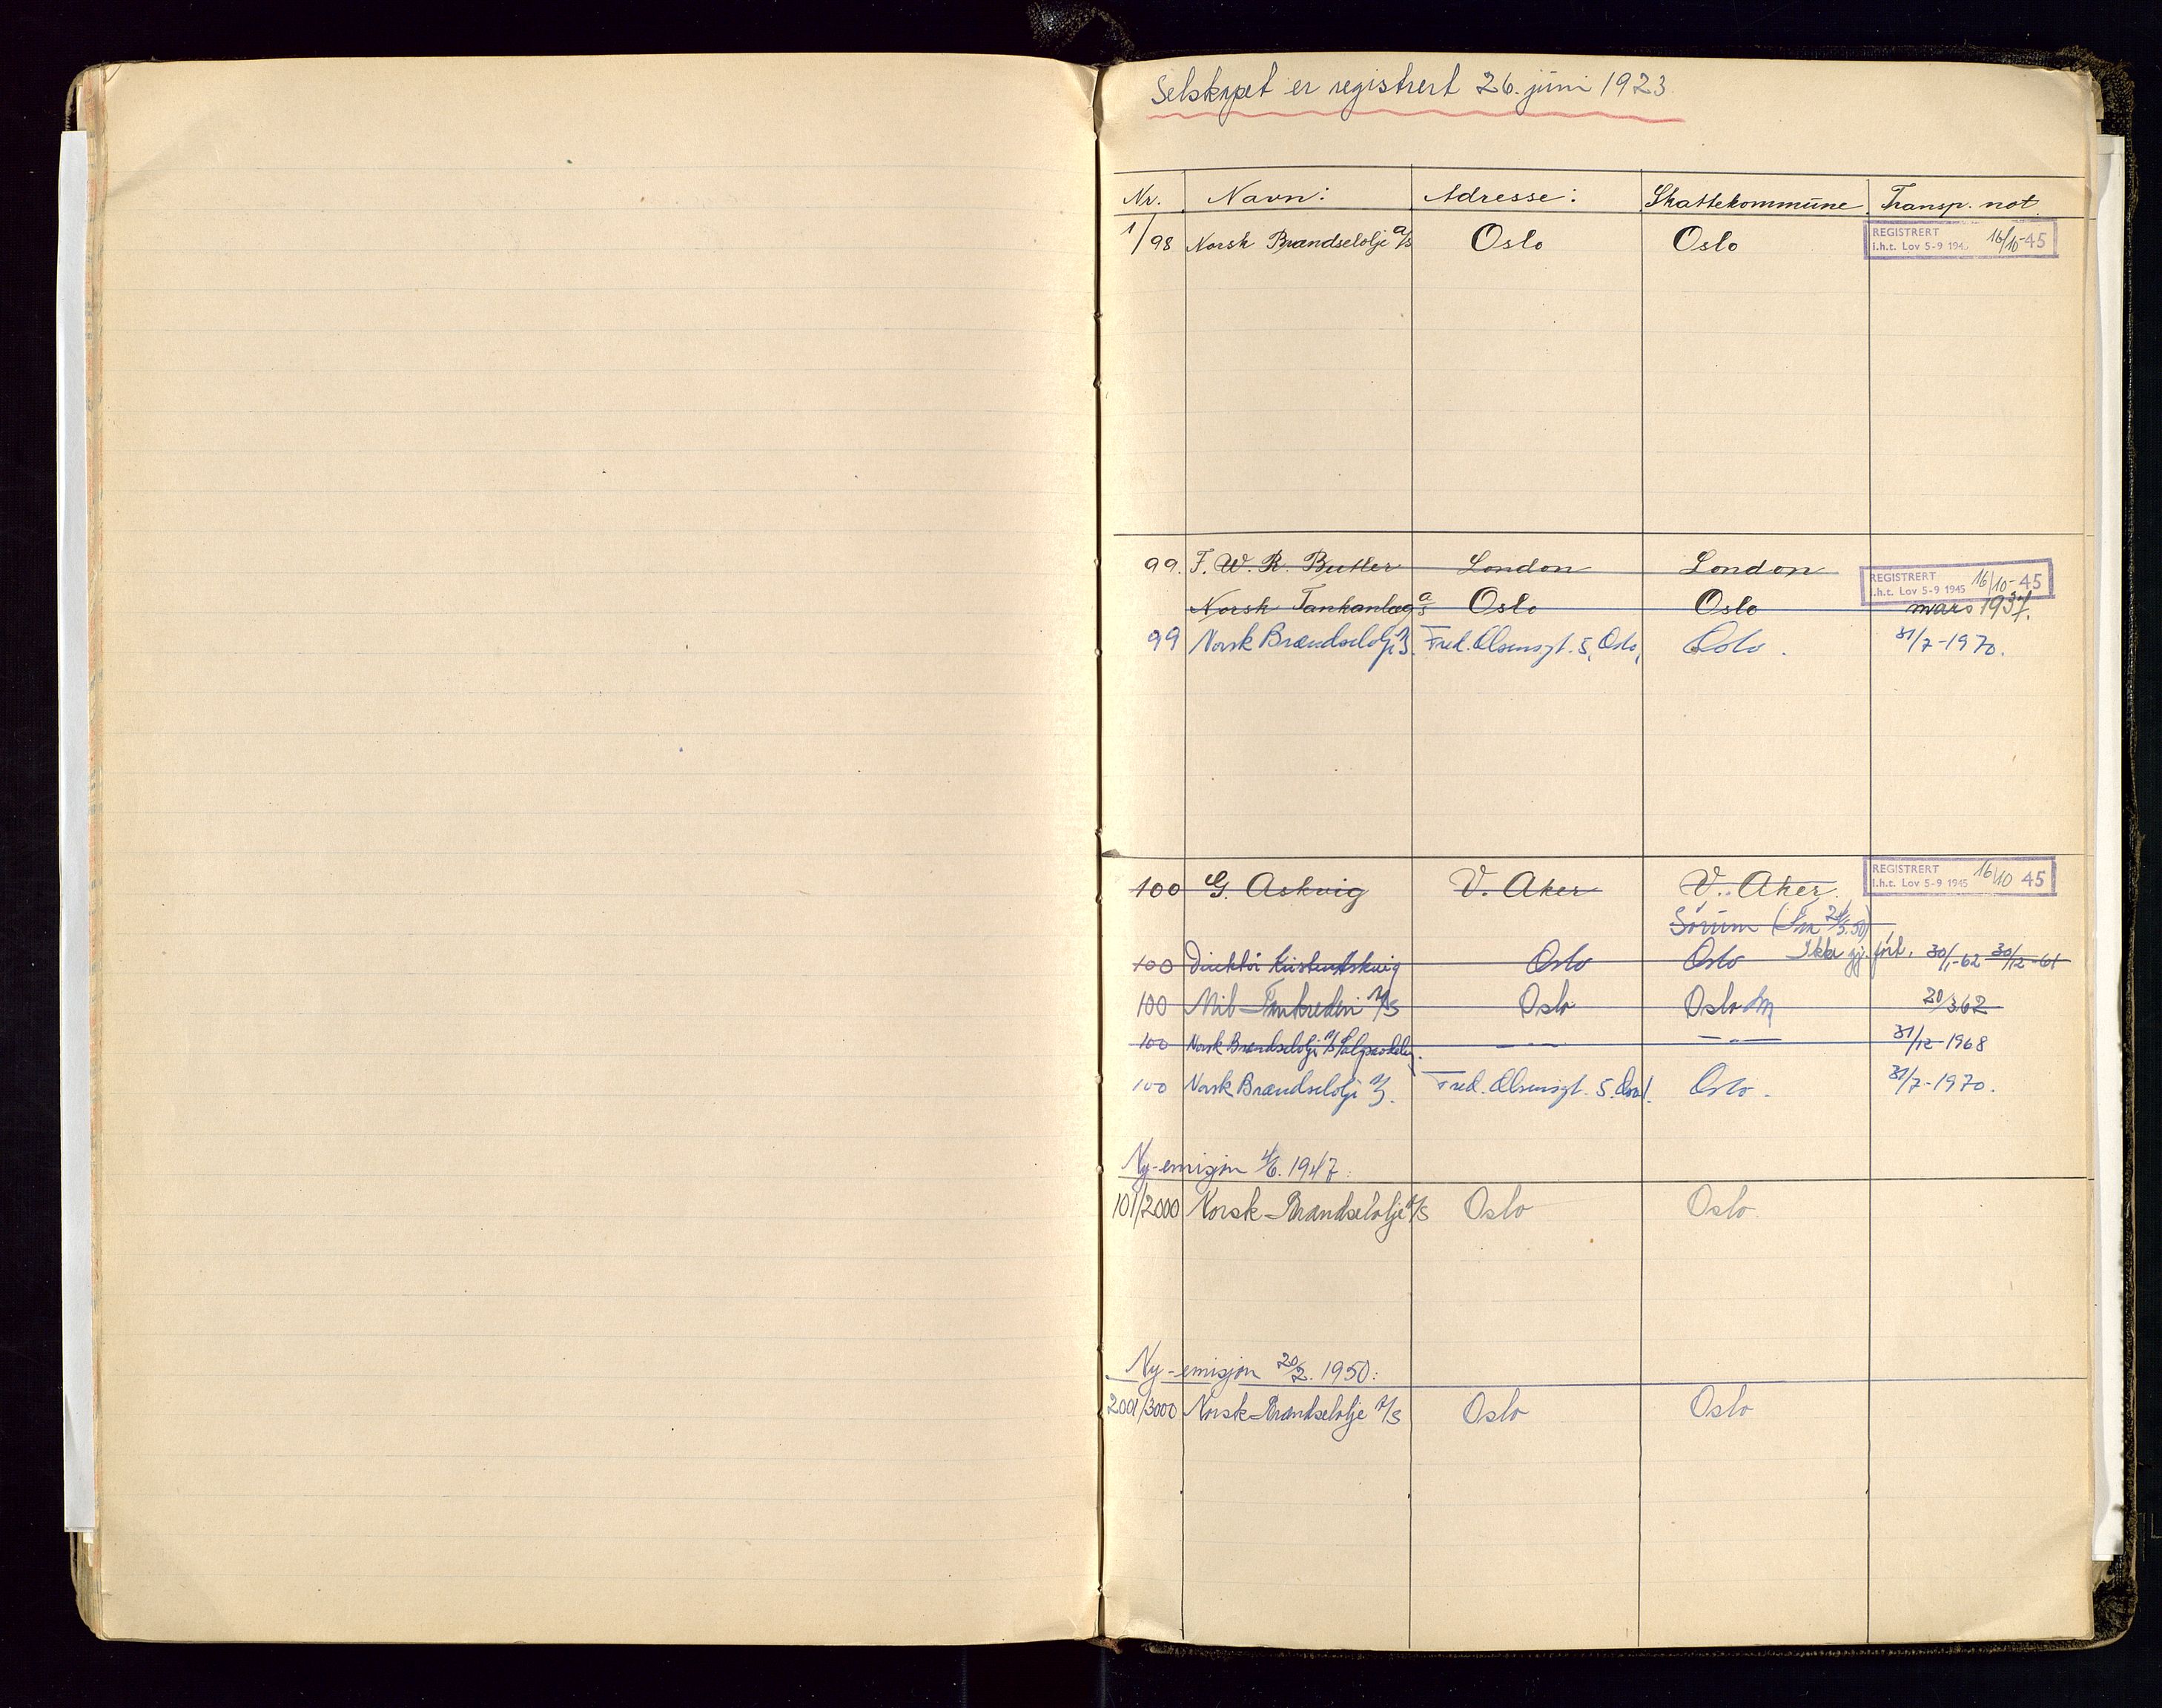 Selskapet er registrert 26. juni 1923
Nr. Navn: Adresse: Skattekommune Transp. not.
1/98 Norsk Brændselolje a/s Oslo Oslo REGISTRERT i.h.t. Lov 5-9 194 16/10-45
99. F. W. R. Butler London London REGISTRERT i.h.t. Lov 5-9 1945 16/10-45
Norsk Tankanlæg a/s Oslo Oslo mars 1937.
99 Norsk Brændselolje A/S. Fred. Olsensgt. 5, Oslo, Oslo. 31/7-1970.
100 G. Askvig V. Aker V. Aker REGISTRERT i.h.t. Lov 5-9 1945 16/10 45
Sørum
100 Direktør Askvig Oslo Oslo Ikke 30/1-62 30/12-61
100 Nil Tankrederi A/S Oslo Oslo 20/3 62
100 Norsk Brændselolje A/S — — — — 31/12-1968
100 Norsk Brændselolje A/S. Fred. Olsensgt. 5. Oslo. 31/7-1970.
Ny-emisjon 4/6. 1947:
101/2000 Norsk Brændselolje A/S Oslo Oslo.
Ny-emisjon 20/2. 1950:
2001/3000 Norsk Brændselolje A/S Oslo Oslo